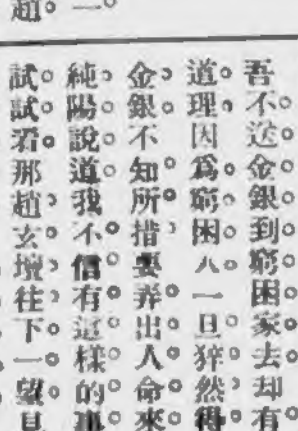 吾不送金銀到窮困家去却有
道理因爲窮困人一旦猝然得
金銀不知所措要弄出人命來
純陽說道我不信有這樣的事
試試看那趙玄壇往下一望見
趙一